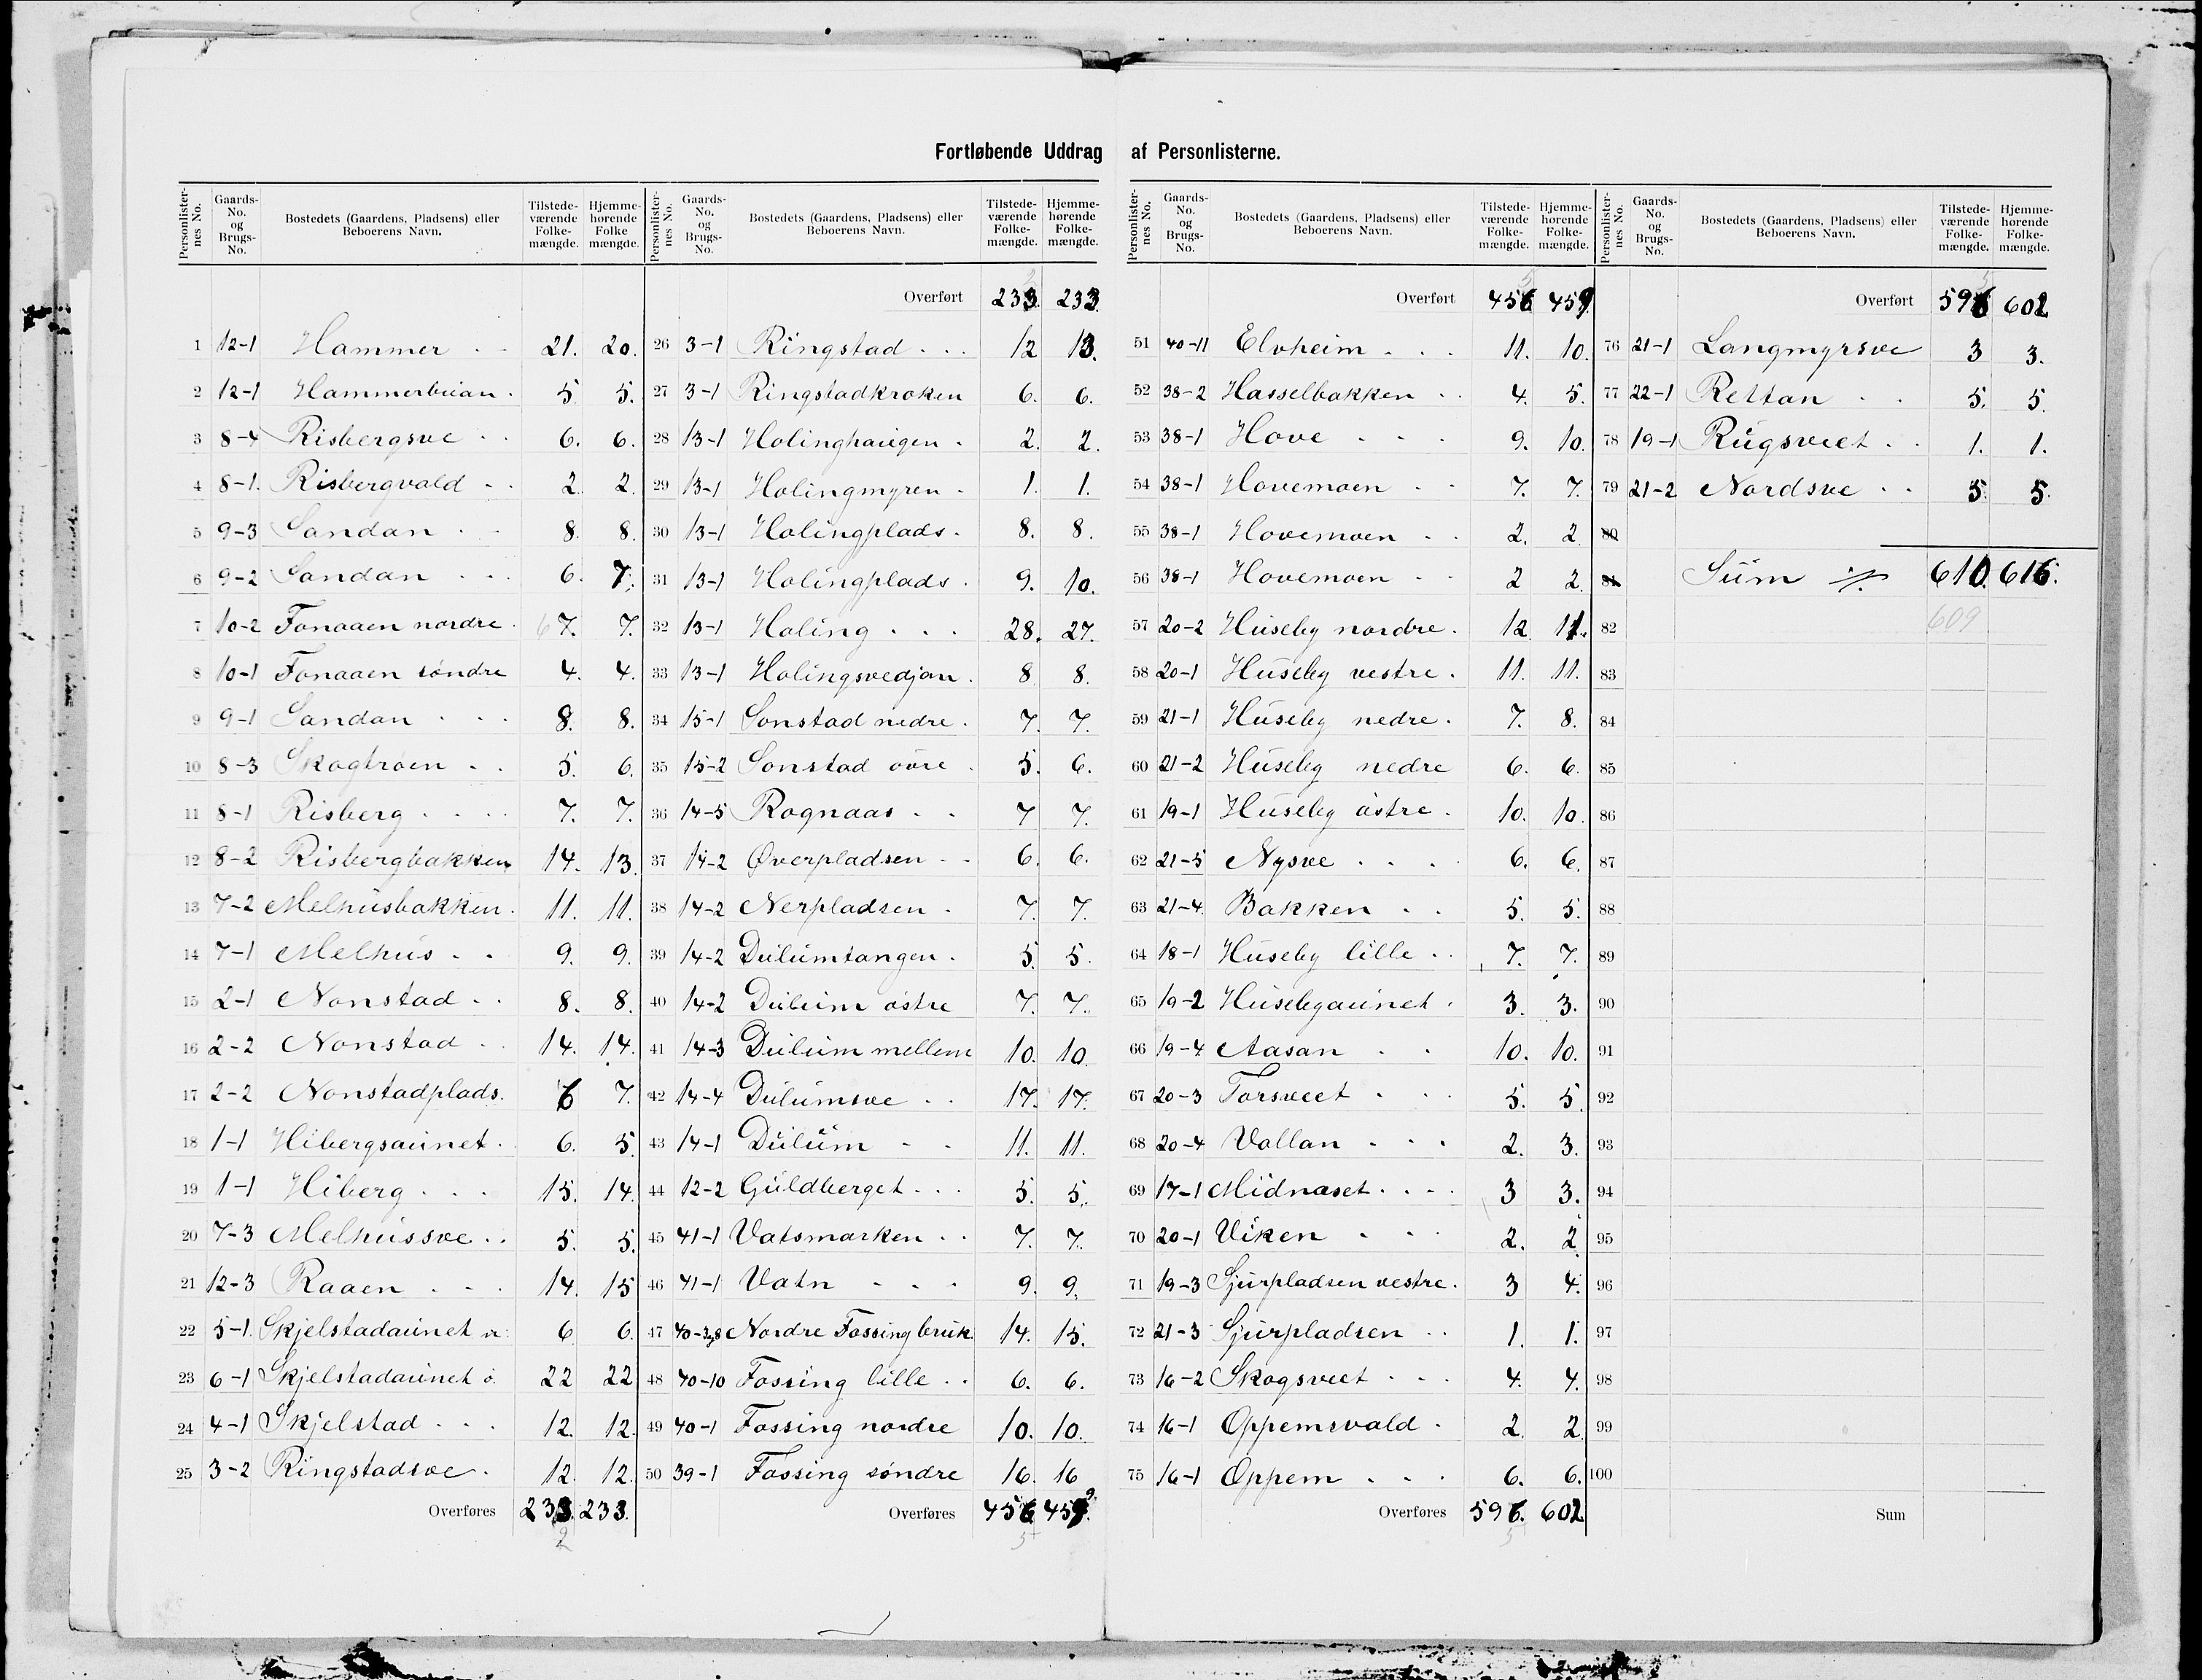 Fortløbende Uddrag af Personlisterne.
Personlisternes No. Gaards-No. og Brugs-No. Bostedets (Gaardens, Pladsens) eller Beboerens Navn. Tilstedeværende Folkemængde. Hjemmehørende Folkemængde.
1 12-1 Hammer . . 21. 20.
2 12-1 Hammerbuan . 5 5.
3 8-4 Risbergsve . . 6. 6.
4 8-1. Risbergvald . . 2. 2.
5 9-3 Sandan . . 8. 8.
6 9-2 Sandan . . . 6. 7.
7 10-2 Fonaaen nordre . 7. 7.
8 10-1 Fonaaen söndre 4. 4.
9 9-1 Sandan . . . 8. 8.
10 8-3 Skogtröen . . 5. 6.
11 8-1 Risberg . . . . 7. 7.
12 8-2 Risbergbakken 14. 13.
13 7-2 Melhusbakken . 11. 11.
14 7-1 Melhus . . 9. 9.
15 2-1 Nonstad . . 8. 8.
16 2-2 Nonstad . . 14. 14.
17 2-2 Nonstadplads. 6 7.
18 1-1 Hibergsaunet . 6. 5.
19 1-1 Hiberg . . . 15. 14.
20 7-3 Melhussve . . 5. 5.
21 12-3 Raaen . . . 14. 15
22 5-1. Skjelstadaunet v. 6 6.
23 6-1 Skjelstadaunet ö. 22 22
24 4-1 Skjelstad . . . 12. 12.
25 3-2 Ringstadsve . 12. 12.
Overføres 233. 233.
2
Personlisternes No. Gaards-No. og Brugs-No. Bostedets (Gaardens, Pladsens) eller Beboerens Navn. Tilstedeværende Folkemængde. Hjemmehørende Folkemængde.
Overført 233. 233.
26 3-1 Ringstad . . . 12 13.
27 3-1 Ringstadkroken 6. 6.
28 13-1 Holinghaugen . 2. 2.
29 13-1 Holingmyren . 1. 1.
30 13-1 Holingplads . 8. 8.
31 13-1 Holingplads . 9. 10.
32 13-1 Holing . . . 28. 27.
33 13-1 Holingsvedjan . 8 8.
34 15-1 Sonstad nedre . 7. 7.
35 15-2 Sonstad övre . 5. 6.
36 14-5 Rognaas . . 7 7.
37 14-2 Øverpladsen . . 6. 6.
38 14-2 Nerpladsen . 7. 7.
39 14-2 Dulumtangen . 5. 5.
40 14-2 Dulum östre 7. 7.
41 14-3 Dulum mellem 10. 10.
42 14-4 Dulumsve . . 17. 17.
43 14-1 Dulum . . 11. 11.
44 12-2 Guldberget . . . 5. 5.
45 41-1 Vatsmarken . . 7. 7.
46 41-1 Vatn . . . 9. 9.
47 40-3,8 Nordre Fossing bruk 14. 15.
48 40-10 Fossing lille . . 6. 6.
49 40-1 Fossing nordre 10. 10.
50 39-1 Fossing söndre 16. 16
Overføres 456 459.
5
Personlisternes No. Gaards-No. og Brugs-No. Bostedets (Gaardens, Pladsens) eller Beboerens Navn. Tilstedeværende Folkemængde. Hjemmehørende Folkemængde.
Overført 456 459
51 40-11 Elvheim . . . 11. 10.
52 38-2 Hasselbakken . . 4. 5.
53 38-1 Hove . . . 9. 10.
54 38-1 Hovemoen . . 7. 7.
55 38-1 Hovemoen . . 2. 2.
56 38-1 Hovemoen . . 2 2.
57 20-2 Huseby nordre . 12. 11.
58 20-1 Huseby vestre . 11. 11.
59 21-1 Huseby nedre . 7. 8.
60 21-2 Huseby nedre 6. 6.
61 19-1 Huseby östre . 10. 10.
62 21-5 Nysve . . . 6. 6.
63 21-4. Bakken . . 5. 5.
64 18-1 Huseby lille . . 7. 7.
65 19-2 Husebyaunet . 3. 3.
66 19-4 Aasan . . 10. 10.
67 20-3 Torsveet . . . 5. 5.
68 20-4 Vollan . . . 2. 3.
69 17-1 Midnæset . . . . 3 3.
70 20-1 Viken . . . 2. 2
71 19-3 Sjurpladsen vestre . 3 4.
72 21-3 Sjurpladsen . . 1. 1.
73 16-2 Skogsveet . . . 4. 4.
74 16-1 Oppemsvald . 2. 2.
75 16-1 Oppem . . . 6. 6.
Overføres 596. 602
5
Personlisternes No. Gaards-No. og Brugs-No. Bostedets (Gaardens, Pladsens) eller Beboerens Navn. Tilstedeværende Folkemængde. Hjemmehørende Folkemængde.
Overført 596 602
76 21-1 Langmyrsve 3 3.
77 22-1 Rettan . . 5. 5.
78 19-1 Rugsveet . . 1. 1.
79 21-2 Nordsve . . 5. 5.
80
81 Sum 610. 616.
82 609
83
84
85
86
87
88
89
90
91
92
93
94
95
96
97
98
99
100
Sum